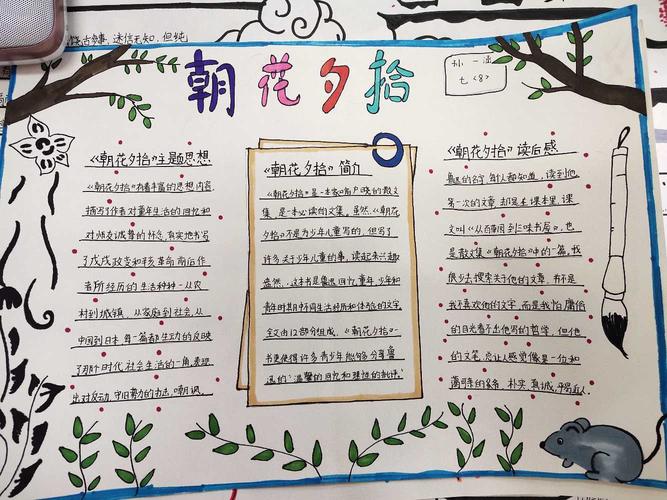 朝花夕拾
孙一涵
七(8)
《朝花夕拾》主题思想
《朝花夕拾》有着丰富的思想内容,
描写了作者对童年生活的回忆和
对师友诚挚的怀念,真实地书写
了戊戌政变和辛亥革命前后作
者所经历的生活种种—从农
村到城镇,从家庭到社会,从
中国到日本,每一篇都生动的反映
了那个时代社会生活的一角,表现
出对反动、守旧势力的抨击、嘲讽。
《朝花夕拾》简介
《朝花夕拾》是一本家喻户晓的散文
集,是一本必读的文集。虽然,《朝花
夕拾》不是为少年儿童写的,但写了
许多关于少年儿童的事,读起来兴趣
盎然。这本书是鲁迅回忆童年、少年和
青年时期中不同生活经历和体验的文字。
全文由12部分组成,《朝花夕拾》一
书更使得许多青少年能够分享鲁
迅的“温馨的回忆和理性的批评。”
《朝花夕拾》读后感
鲁迅的名字,每个人都知道,读到他
第一次的文章,却是在课本里,课
文叫《从百草园到三味书屋》,也
是散文集《朝花夕拾》中的一篇。我
很少去搜索关于他的文章,并不是
我不喜欢他的文字,而是我怕庸俗
的目光看不出他写的哲学,但他
的文笔,总让人感觉像是一位和
蔼可亲的家翁,朴实、真诚,平易近人。
故事,迷信无知,但纯